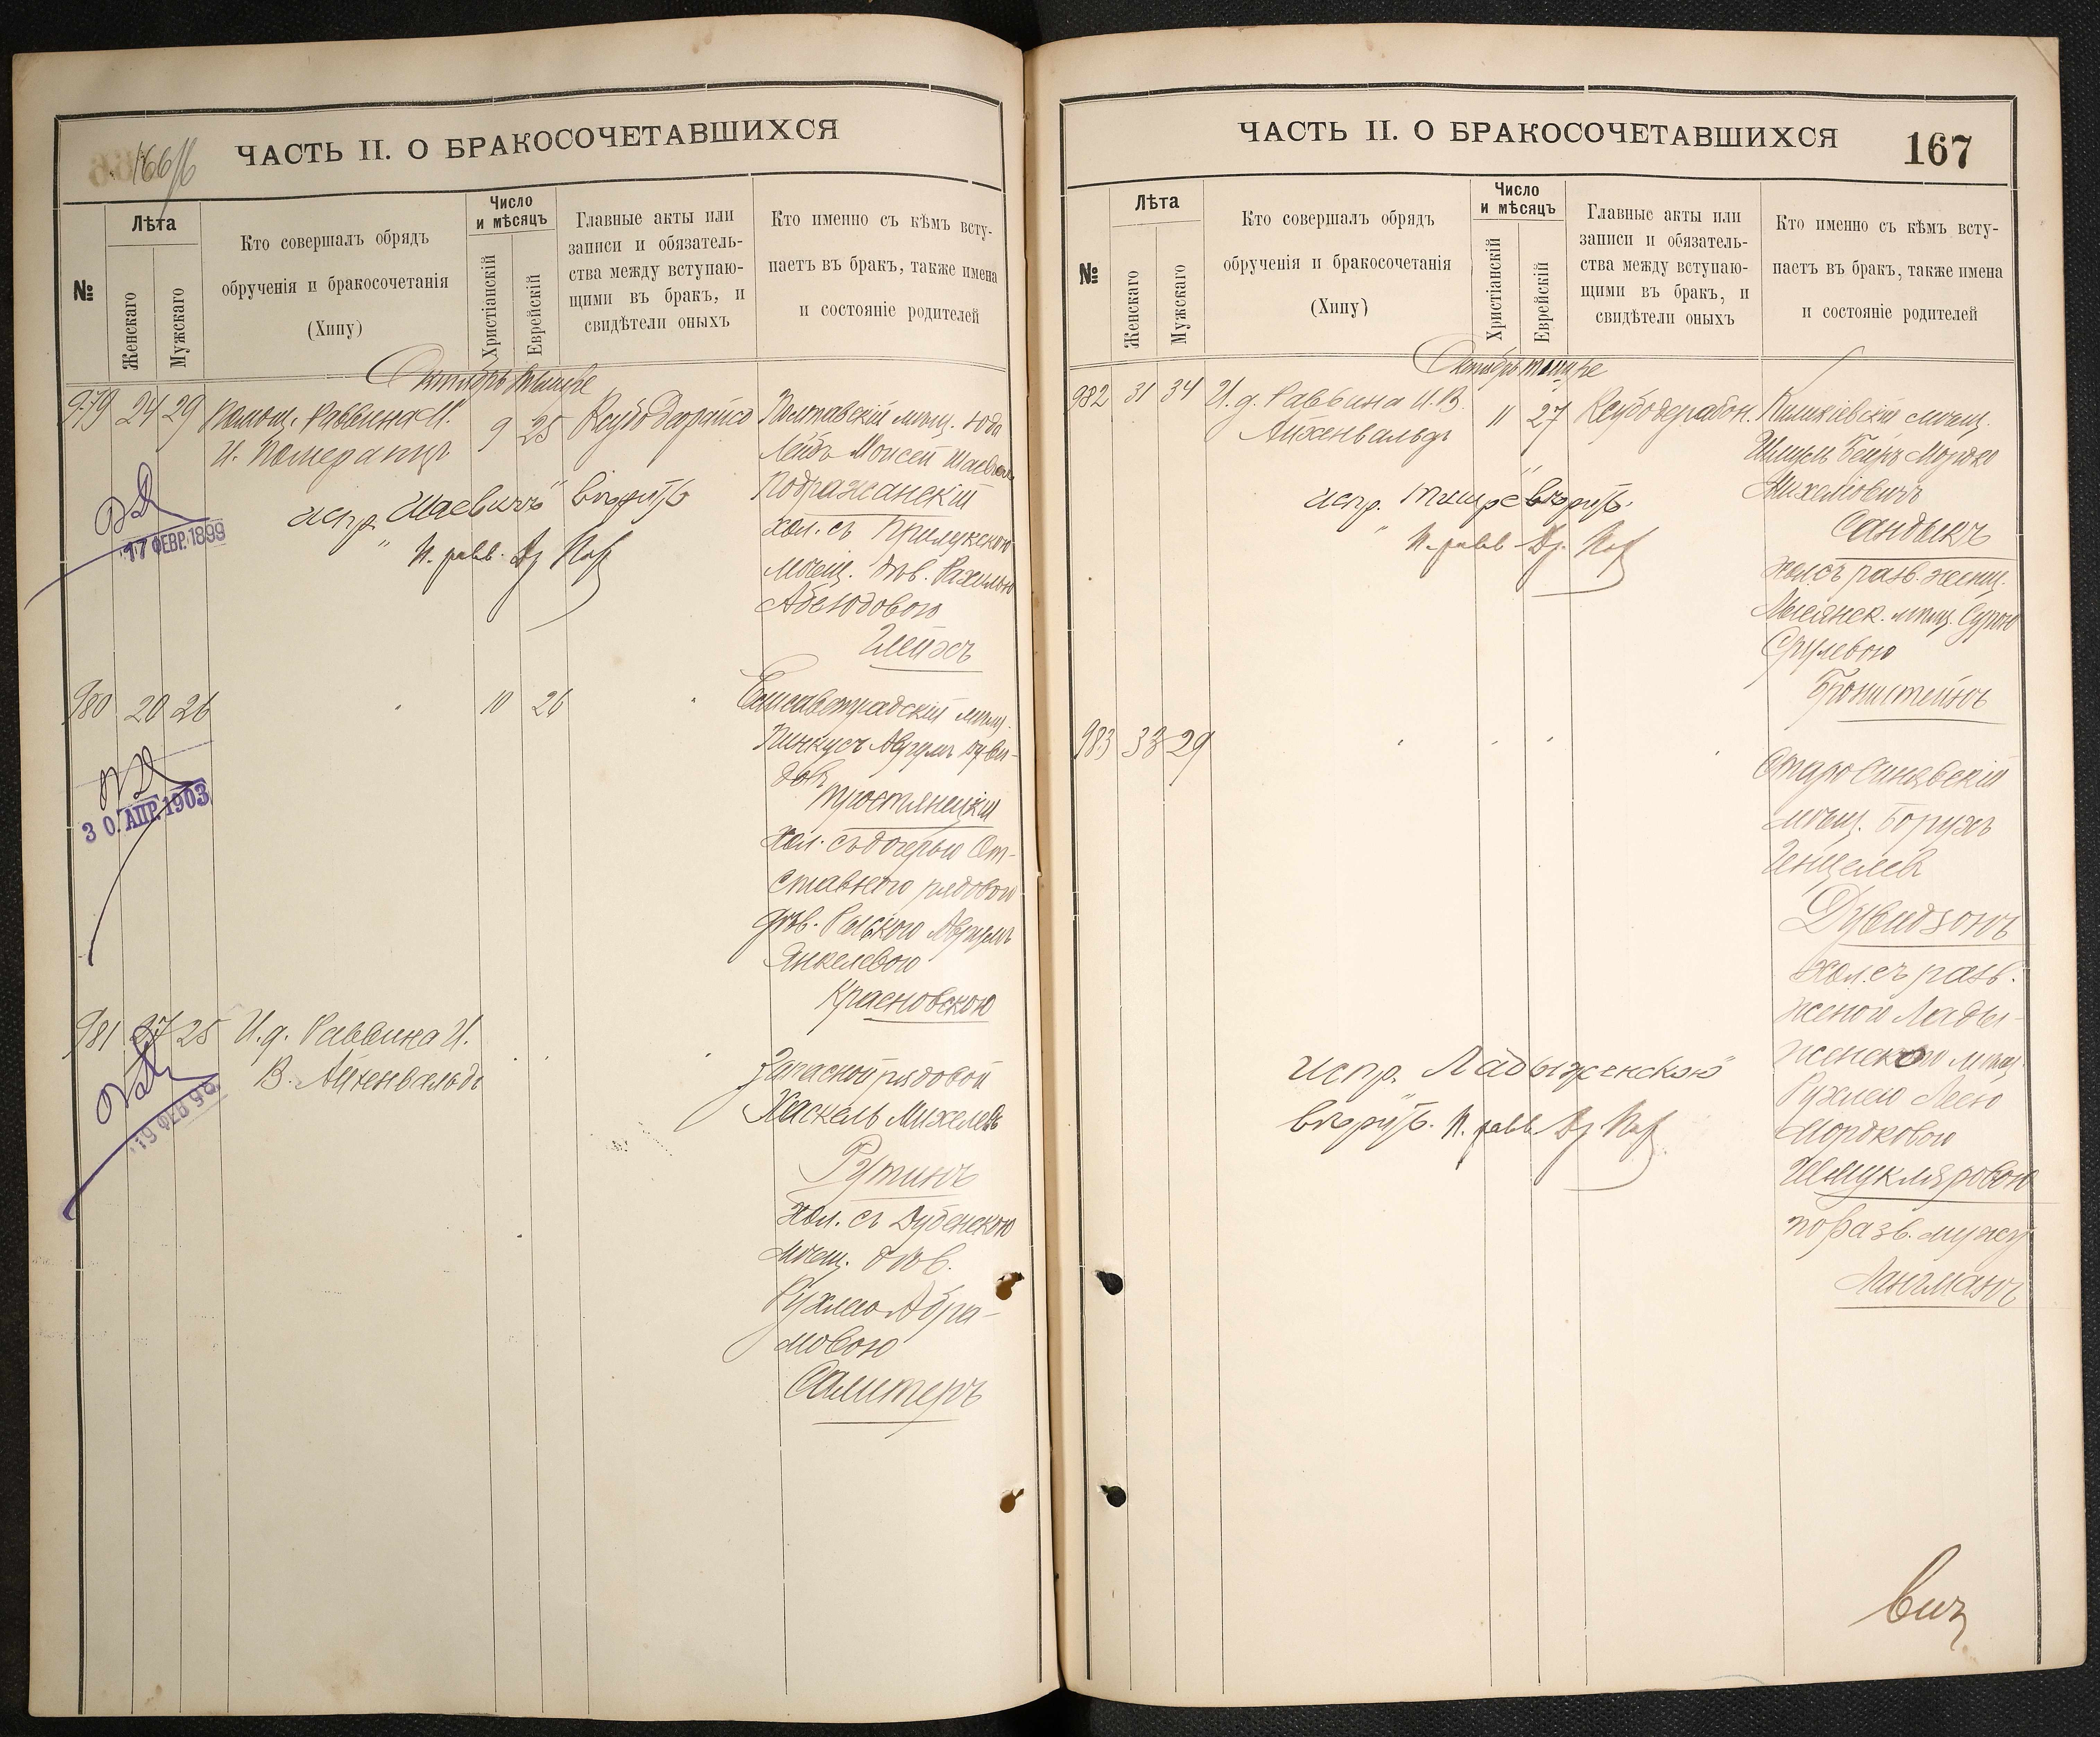 166/б
ЧАСТЬ II. О БРАКОСОЧЕТАВШИХСЯ
№
Лѣта
Женскаго
Мужскаго
Кто совершалъ обрядъ
обрученія и бракосочетанія
(Хипу)
Число
и мѣсяцъ
Христіанскій
Еврейскій
Главные акты или
записи и обязатель-
ства между вступаю-
щими въ бракъ, и
свидѣтели оныхъ
Кто именно съ кѣмъ всту-
паетъ въ бракъ, также имена
и состояніе родителей
Октябрь тишре
979 24 29
Помощ. Раввина М.
И. Померанцъ
9 25
Полтавскій мѣщ. Юда
Лейбъ Моисей
Подражанскій
хол. съ Прилукскою
мѣщ. дѣв. Рахилью
Глейхъ
испр. "Шаевичъ"
"
17 ФЕВР. 1899
980 20 26
"
10 26
"
Елисаветградскій мѣщ.
Пинкусъ Аврумъ Дуви-
довъ
Тростянецкій
хол. съ дочерью От-
ставного рядового
дѣв.
Янкелевою
Красновскою
30. АПР. 1903
981 27 25
И. д. Раввина И.
В. Айхенвальдъ
" "
"
Запасной рядовой
Хаскель Михелевъ
Рутинъ
хол. съ Дубенскою
мѣщ. дѣв.
Рухлею Абра-
мовою
Салитеръ
19 ФЕВ 99
ЧАСТЬ II. О БРАКОСОЧЕТАВШИХСЯ
167
№
Лѣта
Женскаго
Мужскаго
Кто совершалъ обрядъ
обрученія и бракосочетанія
(Хипу)
Число
и мѣсяцъ
Христіанскій
Еврейскій
Главные акты или
записи и обязатель-
ства между вступаю-
щими въ бракъ, и
свидѣтели оныхъ
Кто именно съ кѣмъ всту-
паетъ въ бракъ, также имена
и состояніе родителей
Октябрь тишре
982 31 34
И. д. Раввина И. В.
Айхенвальдъ
11 27
мѣщ.
Шмуль Беръ Мордко
Михелiовичъ
Сандыкъ
хол. съ разв. женщ.
Лысянск. мѣщ. Сурою
Срулевою
Бронштейнъ
испр. "тишре"
983 33 29
" " " "
Старо Синявскій
мѣщ. Борухъ
Генцелевъ
Дувидзонъ
хол. съ разв.
женою Лады-
женскою мѣщ.
Рухлею Леею
Мордковою
Шмукляровою
по разв. мужу
Лангманъ
испр. "Ладыженскою"